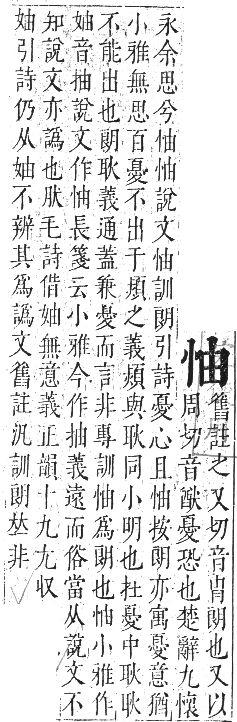 怞
舊註之又切音胄朗也又以
周切音猷憂恐也楚辭九懷
永余思兮怞怞說文怞訓朗引詩憂心且怞按朗亦寓憂意猶
小雅無思百憂不出于熲之義熲與耿同小明也杜憂中耿耿
不能出也朗耿義通蓋兼憂而言非專訓怞爲朗也怞小雅作
妯音抽說文作怞長箋云小雅今作抽義遠而俗當从說文不
知說文亦譌也肰毛詩借妯無意義正韻十九尤収
妯引詩仍从妯不辨其爲譌文舊註汎訓朗𠀤非